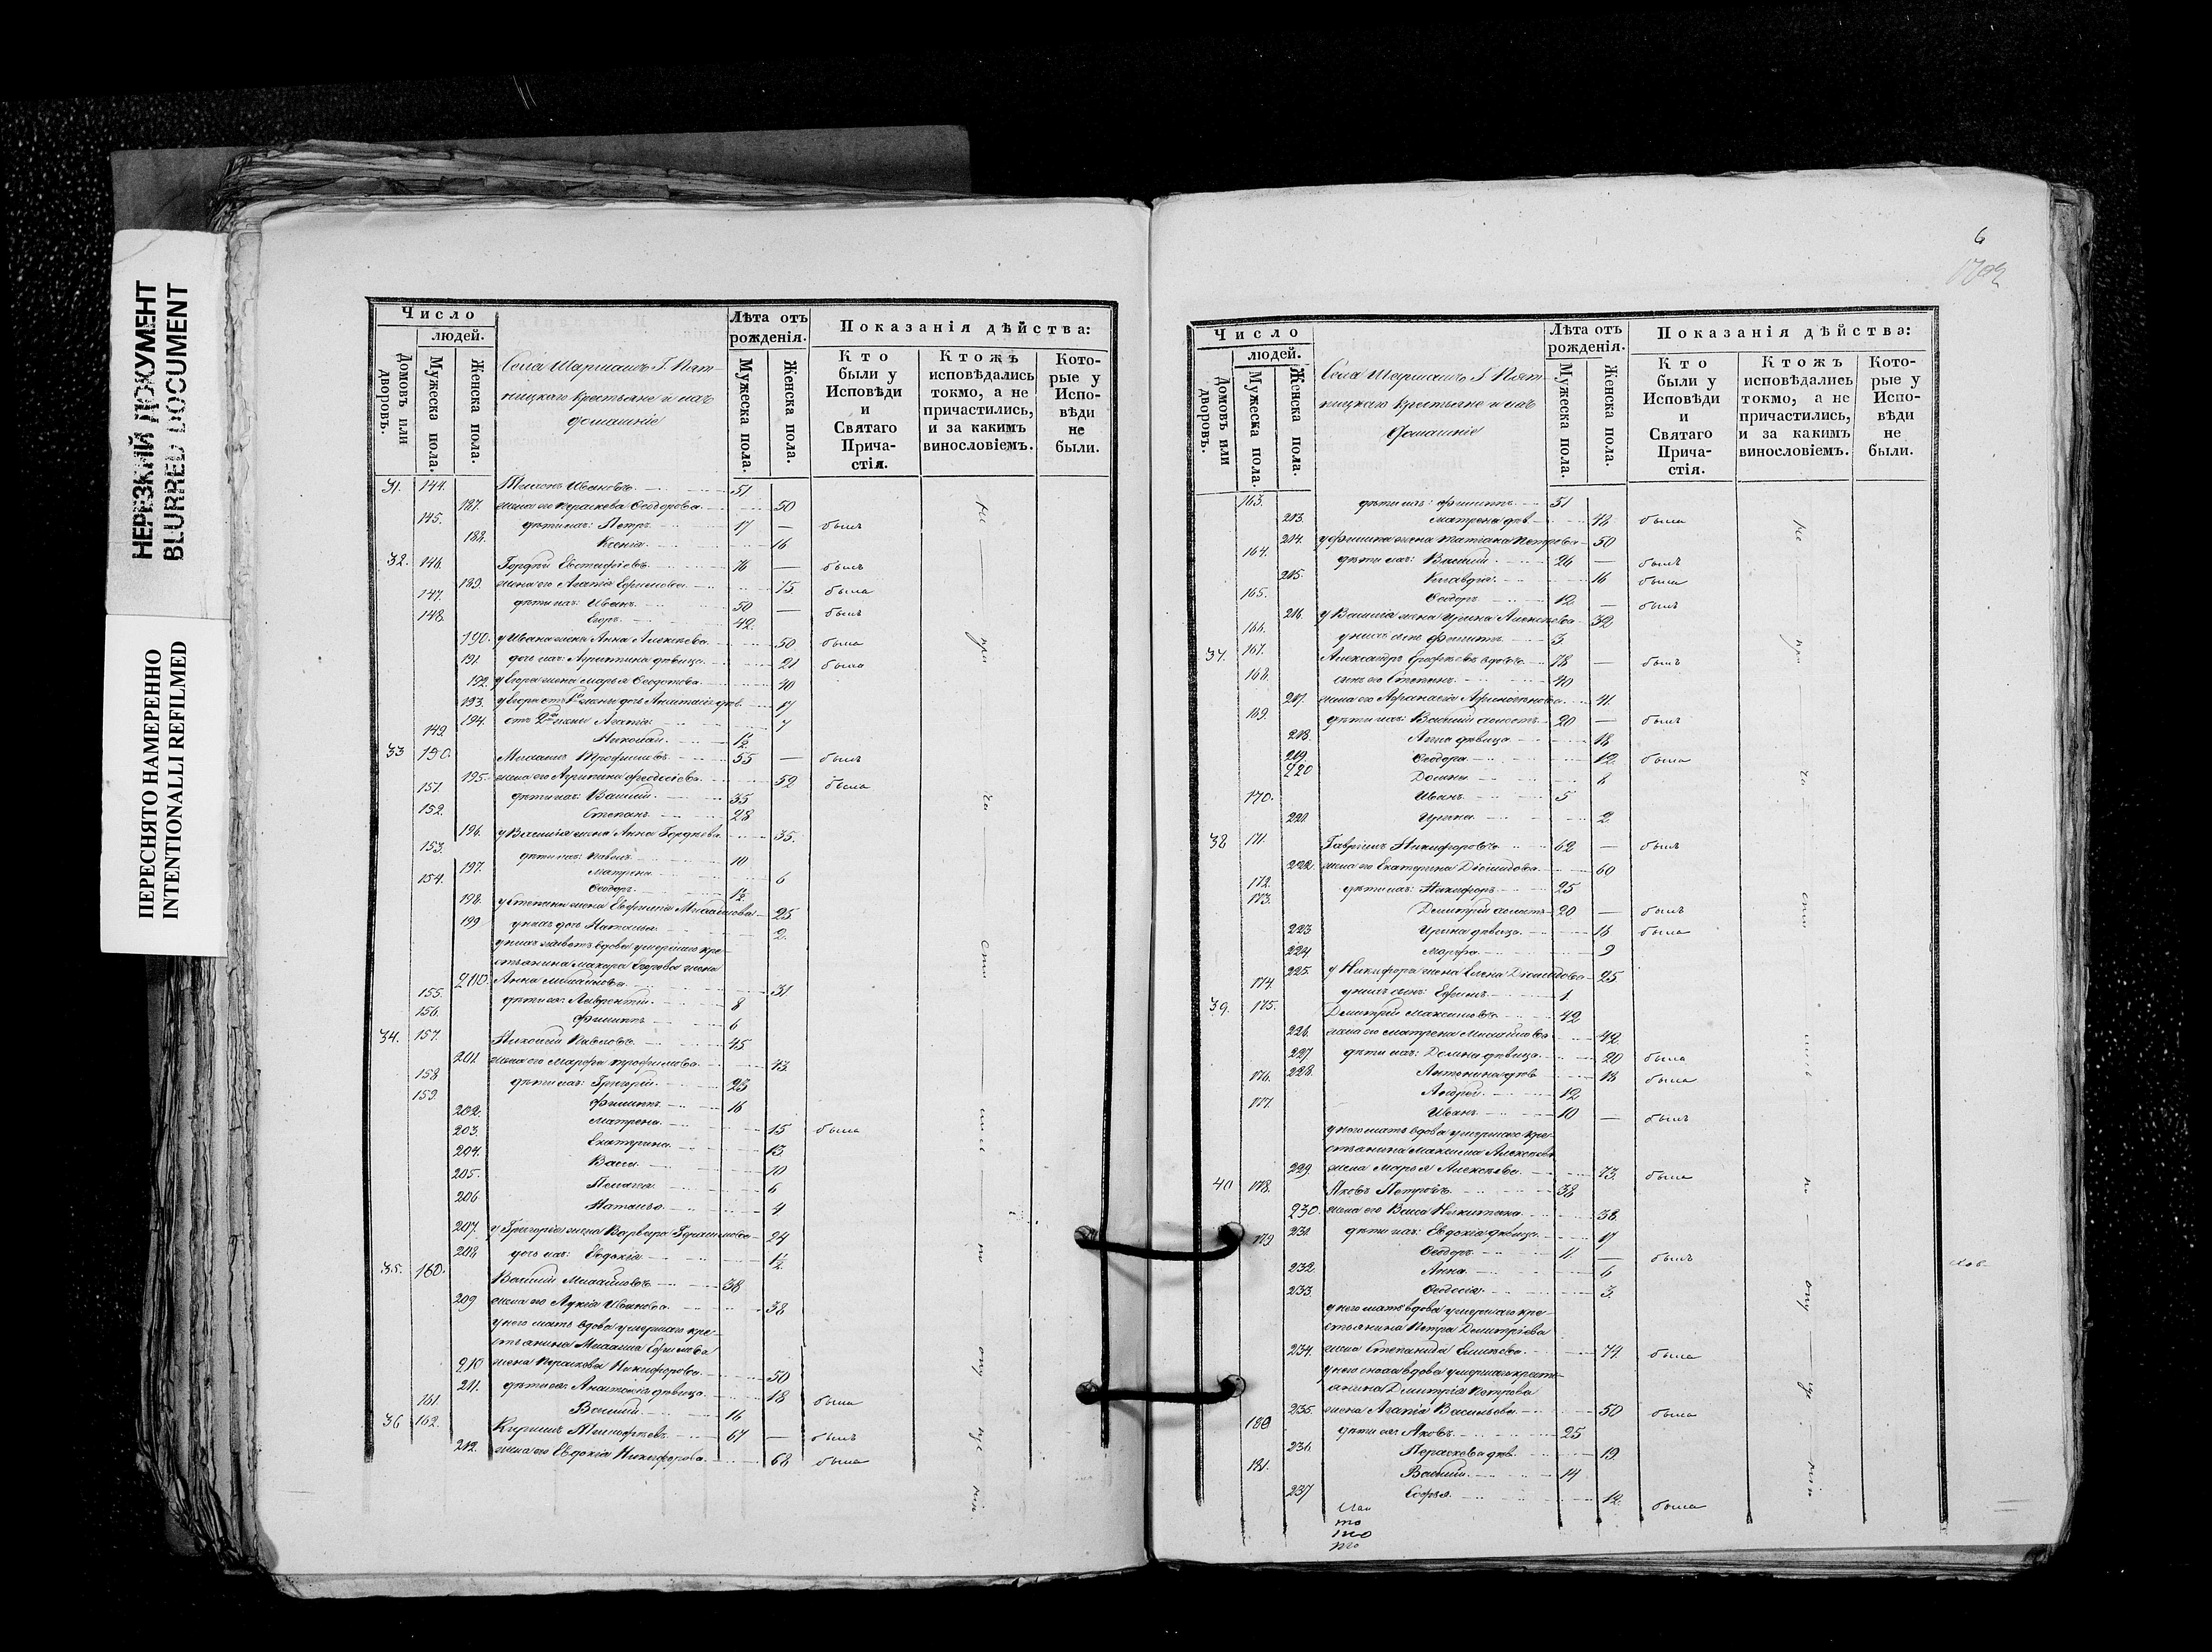 НЕРЕЗКИЙ ДОКУМЕНТ
BLURRED DOCUMENT
ПЕРЕСНЯТО НАМЕРЕННО
INTENTIONALLI REFILMED
Число
людей.
Домовъ или дворовъ.
Мужеска пола.
Женска пола.
крестьяне и ихъ
домашніе
Лѣта отъ рожденія.
Мужеска пола.
Женска пола.
Показанія дѣйства:
Кто были у Исповѣди и Святаго Причастія.
Ктожъ исповѣдались токмо, а не причастились, и за какимъ винословіемъ.
Которые у Исповѣди не были.
31. 144. Ивановъ 51
187. жена его Параскева Феодорова 50
145. дѣти ихъ: Петръ 17 — былъ
188. Ксенія 16
32. 146. Гордѣй Евстафіевъ 76 — былъ
189. жена его Агапія Ефимова 75 была
147. дѣти ихъ: Иванъ 50 — былъ
148. Егоръ 42
190. у Ивана жена Анна Алексѣева 50 была
191. дочь ихъ: Агрипина дѣвица 21 была
192. у Егора жена Марья Феодотова 40
193. у Егора отъ 1й жены дочь Анастасія дѣв. 17
194. отъ 2й жены Агапія 7
149. Николай 1/2
33 150. Михаилъ Трофимовъ 55 — былъ
195. жена его Агрипина Феодосіева 52 была
151. дѣти ихъ: Василій 35
152. Степанъ 28
196. у Василія жена Анна Гордѣева 35.
153. дѣти ихъ: Павелъ 10
197. Матрена 6
154. Феодоръ 1/2
198. у Степана жена Евфимія Михайлова 25
199 у нихъ дочь Наталья 2.
у нихъ живетъ вдова умершаго кре-
стьянина Макара Егорова жена
200. Анна Михайлова 31
155. дѣти ея: Лаврентій 8
156. Филиппъ 6
34. 157. Николай Павловъ 45
201. жена его Марфа Трофимова 43.
158 дѣти ихъ: Григорій 23
159. Филиппъ 16
202. Матрена 15 была
203. Екатерина 13
204. Васса 10
205. Пелагія 6
206 Наталья 4
207. у Григорія жена Варвара Герасимова 24
208 дочь ихъ: Евдокія 1/2
35. 160. Василій Михайловъ 38
209 жена его Лукія Иванова 38
у него мать вдова умершаго кре-
стьянина Михаила Ефимова
210 жена Параскева Никифорова 50
211. дѣти ея: Анастасія дѣвица 18 была
161. Василій 16
36 162. Кирилъ Тимофѣевъ 67 — былъ
212. жена его Евдокія Никифорова 68 была
6
Число
людей.
Домовъ или дворовъ.
Мужеска пола.
Женска пола.
крестьяне и ихъ
домашніе
Лѣта отъ рожденія.
Мужеска пола.
Женска пола.
Показанія дѣйства:
Кто были у Исповѣди и Святаго Причастія.
Ктожъ исповѣдались токмо, а не причастились, и за какимъ винословіемъ.
Которые у Исповѣди не были.
163. дѣти ихъ: Филиппъ 51
213. Матрена дѣв. 48 была
214. у Филиппа жена Татіана Петрова 50
164. дѣти ихъ: Василій 26 — былъ
215. Клавдія 16 была
165. Феодоръ 12 — былъ
216. у Василія жена Ирина Алексѣева 32
166. у нихъ сынъ Филиппъ 3
37. 167. Александръ Ерофѣевъ вдовъ 78 — былъ
168. сынъ его Степанъ 40
217. жена его 41.
169. дѣти ихъ: Василій холостъ 20 — былъ
218. Анна дѣвица 18
219. Феодора 12 была
220 Домна 8
170. Иванъ 5
221. Ирина 2
38 171. Гавріилъ Никифоровъ 62 — былъ
222. жена его Екатерина 60
172. дѣти ихъ: Никифоръ 25
173. Димитрій холостъ 20 — былъ
223 Ирина дѣвица 16 была
224 Марфа 9
225. у Никифора жена Елена 25
174. у нихъ сынъ: Ефимъ 1.
39. 175. Димитрій Максимовъ 42
226. жена его Матрена Михайлова 42
227. дѣти ихъ: Домна дѣвица 20 была
228. Антонина дѣв. 18 была
176. Андрей 12
177. Иванъ 10 — былъ
у него мать вдова умершаго кре-
стьянина Максима Алексѣева
229. жена Марья Алексѣева 73. была
40 178. Яковъ Петровъ 38
230. жена его Васса Никитина 38
231. дѣти ихъ: Евдокія дѣвица 17
179 Феодоръ 11. — былъ
232. Анна 6
233. Феодосія 3
у него мать вдова умершаго кре-
стьянина Петра Димитріева
234. жена Степанида 74. была
у него сноха вдова умершаго крестьянина Димитрія Петрова
235. жена Агапія Васильева 50 была
180 дѣти ея: Яковъ 25
236. Параскева дѣв. 19
181. Василій 14
237 Софья 12. была